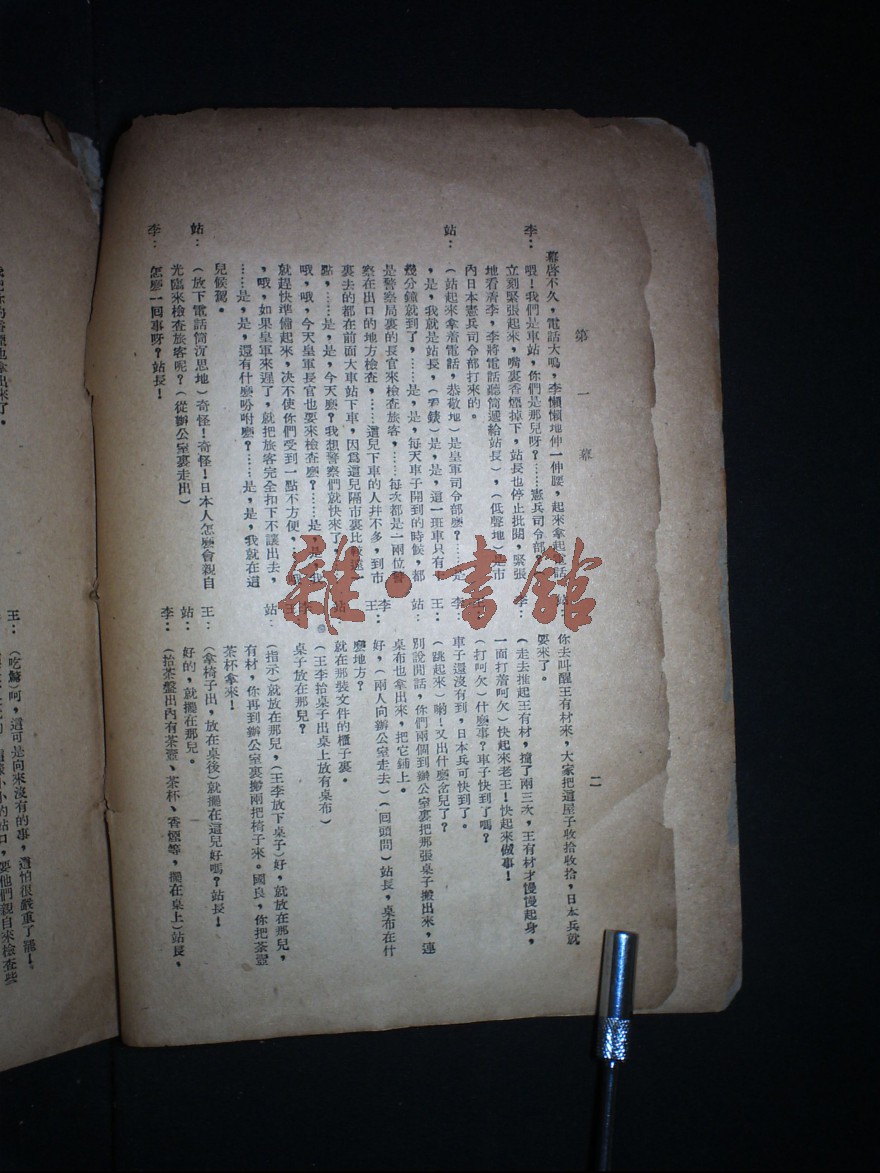 第一幕
幕啓不久，電話大鳴，李懶懶地伸一伸腰，起來拿起電話
李：喂！我們是車站，你們是那兒呀？……憲兵司令部？（
立刻緊張起來，嘴裏香煙掉下，站長也停止批閱，緊張
地看着李，李將電話聽筒遞給站長），（低聲地）是市
內日本憲兵司令部打來的。
站：（站起來拿着電話，恭敬地）是皇軍司令部麼？……是
，是，我就是站長，（看錶）是，是，這一班車只有十
幾分鐘就到了，……是，是，每天車子開到的時候，都
是警察局裏的長官來檢查旅客，……每次都是一兩位警
察在出口的地方檢查，……這兒下車的人幷不多，到市
裏去的都在前面大車站下車，因爲這兒隔市裏比較遠一
點，……是，是，今天麼？我想警察們就快來了，
哦，哦，今天皇軍長官也要來檢查麼？……是，是，我
就趕快準備起來，决不使你們受到一點不方便，
，哦，如果皇軍來遲了，就把旅客完全扣下不讓出去，
……是，是，還有什麼吩咐麼？……是，是，我就在這
兒候駕。
站：（放下電話筒沉思地）奇怪！奇怪！日本人怎麼會親自
光臨來檢查旅客呢？（從辦公室裏走出）
李：怎麼一回事呀？站長！
二
站：你去叫醒王有材來，大家把這屋子收拾收拾，日本兵就
要來了。
李：（走去推起王有材，擋了兩三次，王有材才慢慢起身，
一面打着呵欠）快起來老王！快起來做事！
王：（打呵欠）什麼事？車子快到了嗎？
李：車子還沒有到，日本兵可快到了。
王：（跳起來）喲！又出什麼岔兒了？
站：別說閒話，你們兩個到辦公室裏把那張桌子搬出來，連
桌布也拿出來，把它鋪上。
李王：好，（兩人向辦公室走去）（回頭問）站長，桌布在什
麼地方？
站：就在那裝文件的櫃子裏。
（王李抬桌子出桌上放有桌布）
王：桌子放在那兒？
站：（指示）就放在那兒，（王李放下桌子）好，就放在那兒，
有材，你再到辦公室裏搬兩把椅子來。國良，你把茶壺
茶杯拿來！
王：（拿椅子出，放在桌後）就擺在這兒好嗎？站長！
站：好的，就擺在那兒。
李：（拾茶盤出內有茶壼、茶杯、香煙等，擺在桌上）站長，
王：（吃驚）呵，這可是向來沒有的事，這怕很嚴重了罷！
的站口，要他們親自來檢查些
也拿出來了。
雜·書館